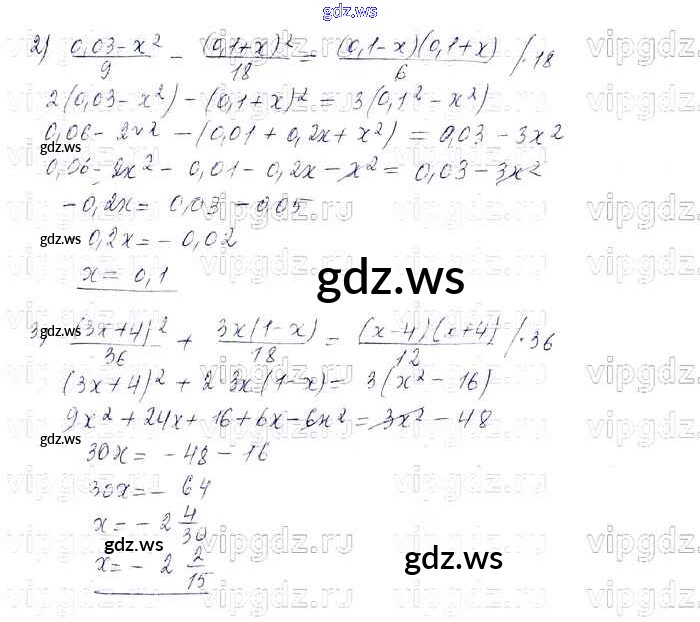 gdz.ws
2) (0,03-x²)/9 - (0,1+x)²/18 = (0,1-x)(0,1+x)/6 /·18
2(0,03-x²)-(0,1+x)² = 3(0,1²-x²)
0,06-2x²-(0,01+0,2x+x²) = 0,03-3x²
gdz.ws
0,06-2x²-0,01-0,2x-x² = 0,03-3x²
-0,2x = 0,03-0,05
gdz.ws
0,2x = -0,02
x = 0,1
gdz.ws
3) (3x+4)²/36 + 3x(1-x)/18 = (x-4)(x+4)/12 /·36
(3x+4)²+2·3x(1-x) = 3(x²-16)
9x²+24x+16+6x-6x² = 3x²-48
gdz.ws
30x = -48-16
30x = -64
x = -2 4/30
gdz.ws
gdz.ws
x = -2 2/15
vipgdz.ru